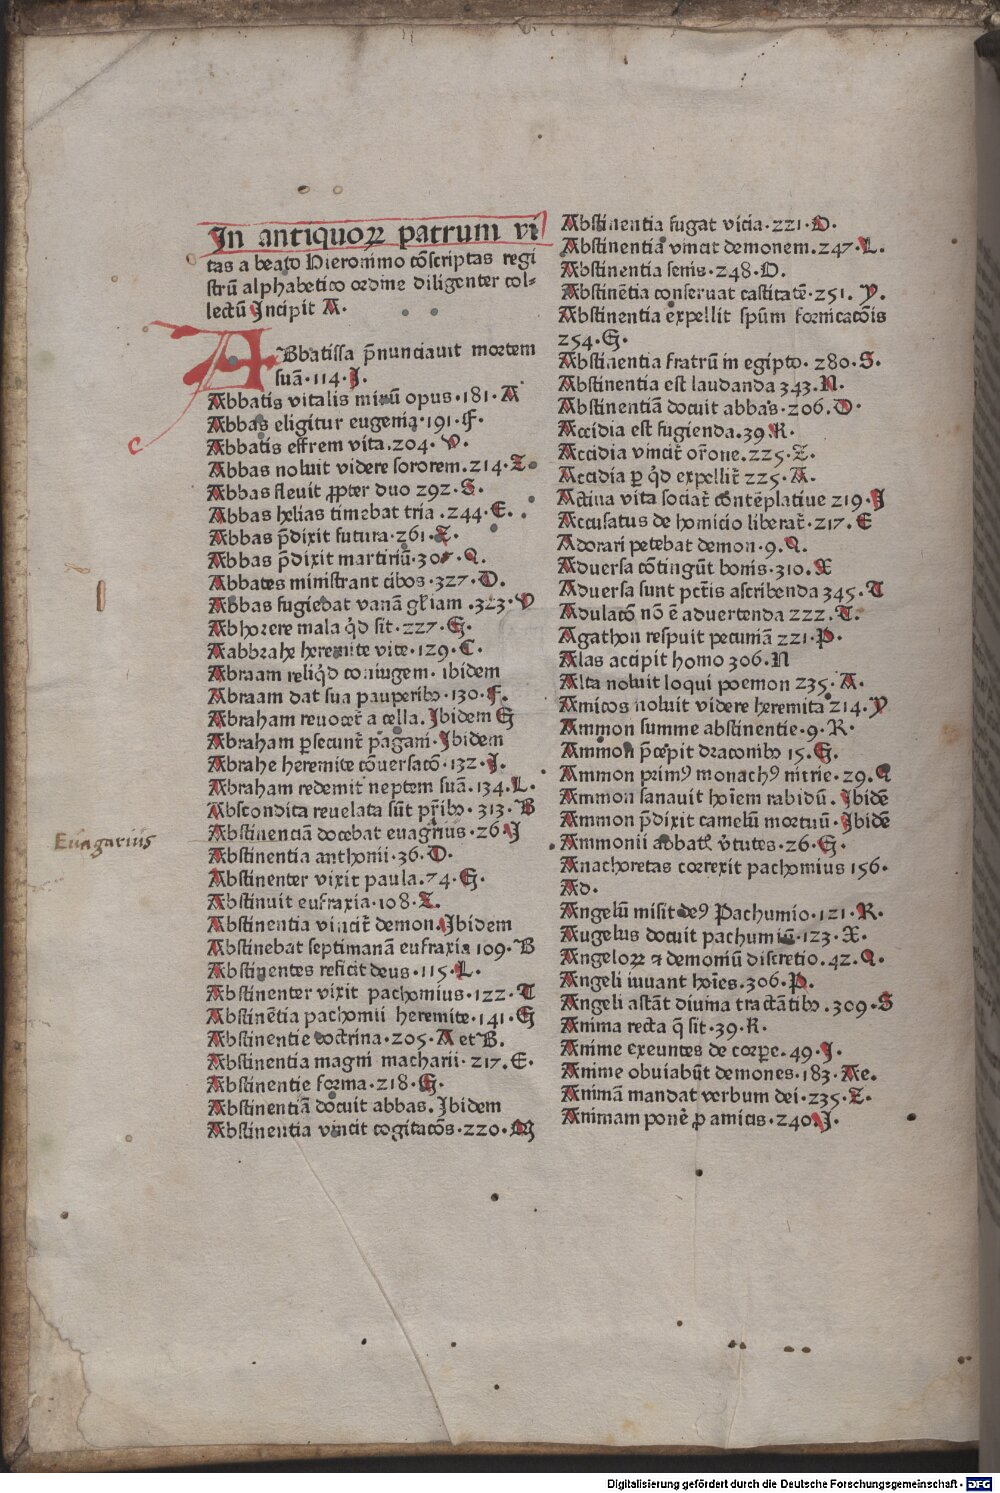 In antiquoꝝ patrum vi
tas a beato Hieronimo cōscriptas regi
strū alphabetico ordine diligenter col-
lectū Incipit A.
ABbatissa p̄nunciauit mortem
suā·114·J.
Abbatis vitalis mirū opus·181·A
Abbas eligitur eugenia·191·F.
Abbatis effrem vita.204·V.
Abbas noluit videre sororem.214·Z
Abbas fleuit ꝓpter duo 292·S.
Abbas helias timebat tria.244·E.
Abbas p̄dixit futura·261·Z.
Abbas p̄dixit martiriū·307·Q.
Abbates ministrant cibos·327·D.
Abbas fugiebat vanā gl̄iam.323·V
Abhorere mala q̇d sit·227·G.
Aabbrahe heremite vite·129·C.
Abraam reliq̇d coniugem·ibidem
Abraam dat sua pauperibꝰ·130·F.
Abraham reuocet̄ a cella.Ibidem G
Abraham ꝑsecunt̄ pagani·Ibidem
Abrahe heremite cōuersatō·132·J.
Abraham redemit neptem suā.134.L.
Abscondita reuelata sūt pr̄ibꝰ·313·B
Abstinenciā docebat euagrius·26·J
Abstinentia anthonii·36·D.
Abstinenter vixit paula.74·G.
Abstinuit eufraxia·108·Z.
Abstinentia vincit̄ demon.Ibidem
Abstinebat septimanā eufraxia 109·B
Abstinentes reficit deus·115·L.
Abstinenter vixit pachomius·122·T
Abstinētia pachomii heremite·141·G
Abstinentie doctrina·205·A et B.
Abstinentia magni macharii·217.E.
Abstinentie forma·218·G.
Abstinentiā docuit abbas.Ibidem
Abstinentia vincit cogitatōs·220·M
Euagariis
Abstinentia fugat vicia·221·D.
Abstinentia vincit demonem.247·L.
Abstinentia senis·248·D.
Abstinētia conseruat castitatē·251.Y.
Abstinentia expellit spūm fornicacōis
254·G.
Abstinentia fratrū in egipto·280·S.
Abstinentia est laudanda 343·N.
Abstinentiā docuit abbas·206·D·
Accidia est fugienda.39·R·
Accidia vincit̄ or̄one.225·Z.
Accidia ꝑ q̇d expellit̄ 225·A.
Actiua vita sociat̄ contēplatiue 219·J
Accusatus de homicio liberat̄·217.E
Adorari petebat demon·9.Q.
Aduersa cōtingūt bonis·310.X
Aduersa sunt pctīs ascribenda 345·T
Adulatō nō ē aduertenda 222.T.
Agathon respuit pecuniā 221·P·
Alas accipit homo 306.N
Alta noluit loqui poemon 235·A.
Amicos noluit videre heremita 214.Y
Ammon summe abstinentie·9·R·
Ammon p̄cepit draconibꝰ 15.G.
Ammon primꝰ monachꝰ nitrie·29.Q
Ammon sanauit hoīem rabidū. Ibidē
Ammon p̄dixit camelū mortuū·Ibidē
Ammonii abbatꝭ v̄tutes·26·G.
Anachoretas correxit pachomius 156·
Ad.
Angelū misit deꝰ Pachumio·121·R.
Augelus docuit pachumiū·123·X.
Angeloꝝ ⁊ demoniū discretio.42.Q.
Angeli iuuant hoīes.306.P.
Angeli astāt diuina tractātibꝰ.309·S
Anima recta q̄ sit·39·R.
Anime exeuntes de corpe.49·J.
Anime obuiabūt demones·183·Ae.
Animā mandat verbum dei·235·Z.
Animam ponē ꝓ amicis·240·J.
Digitalisierung gefördert durch die Deutsche Forschungsgemeinschaft - DFG